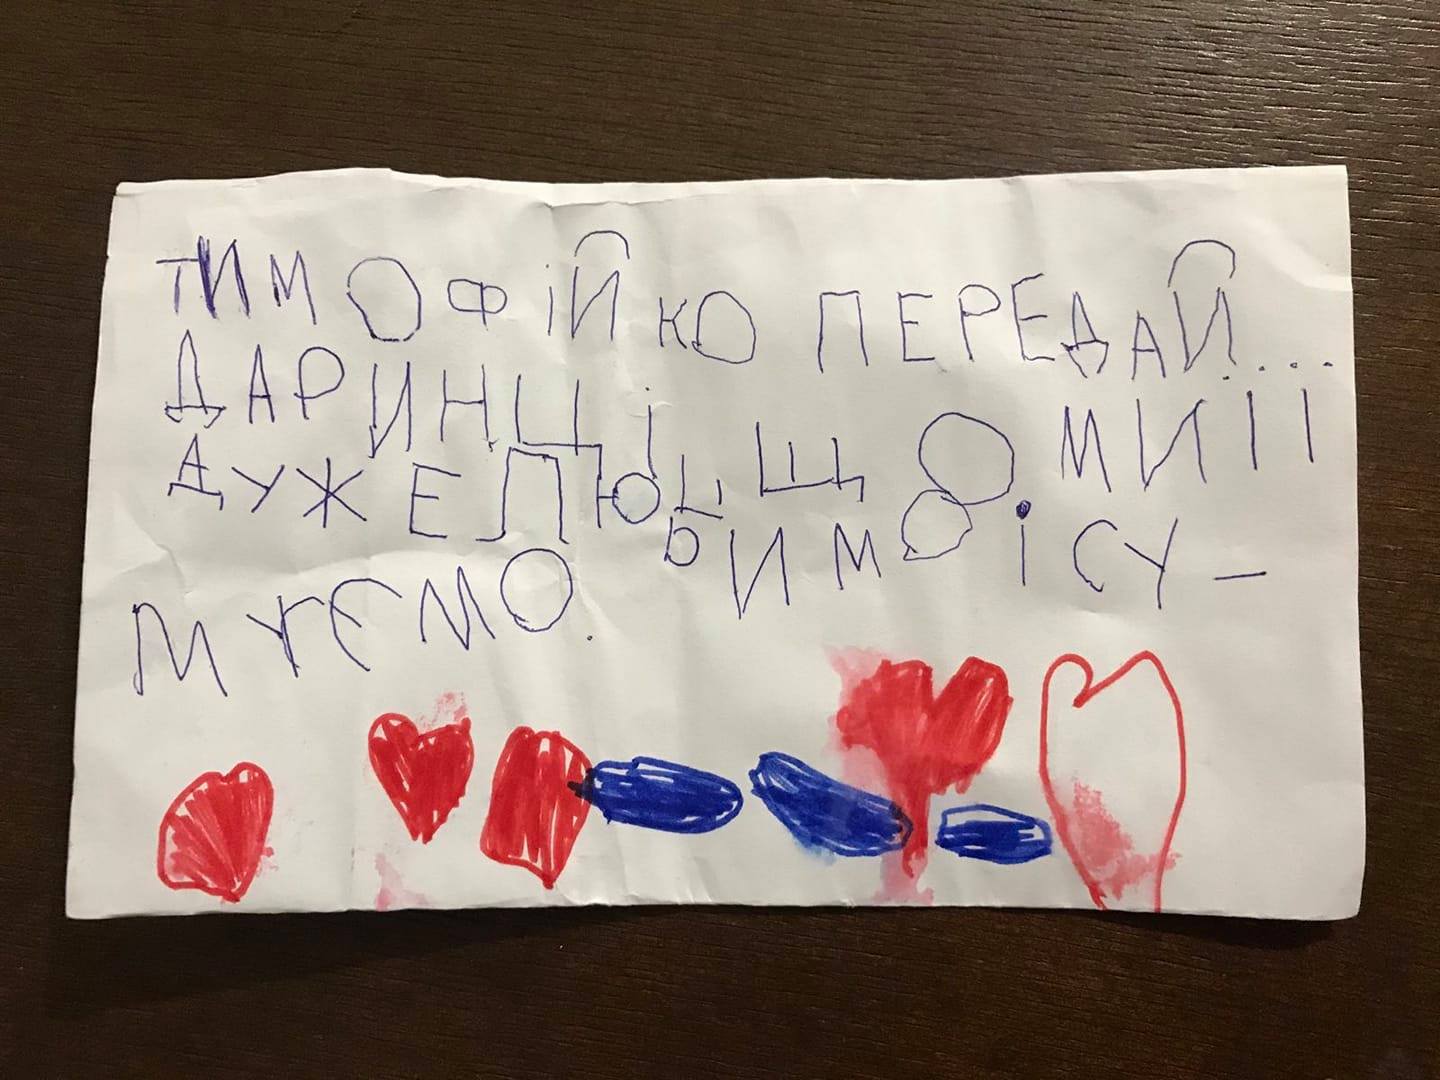 ТИМОФІЙКО ПЕРЕДАЙ
ДАРИНЦІ ЩО МИ ЇЇ
ДУЖЕ ЛЮБИМО І СУ-
МУЄМО.